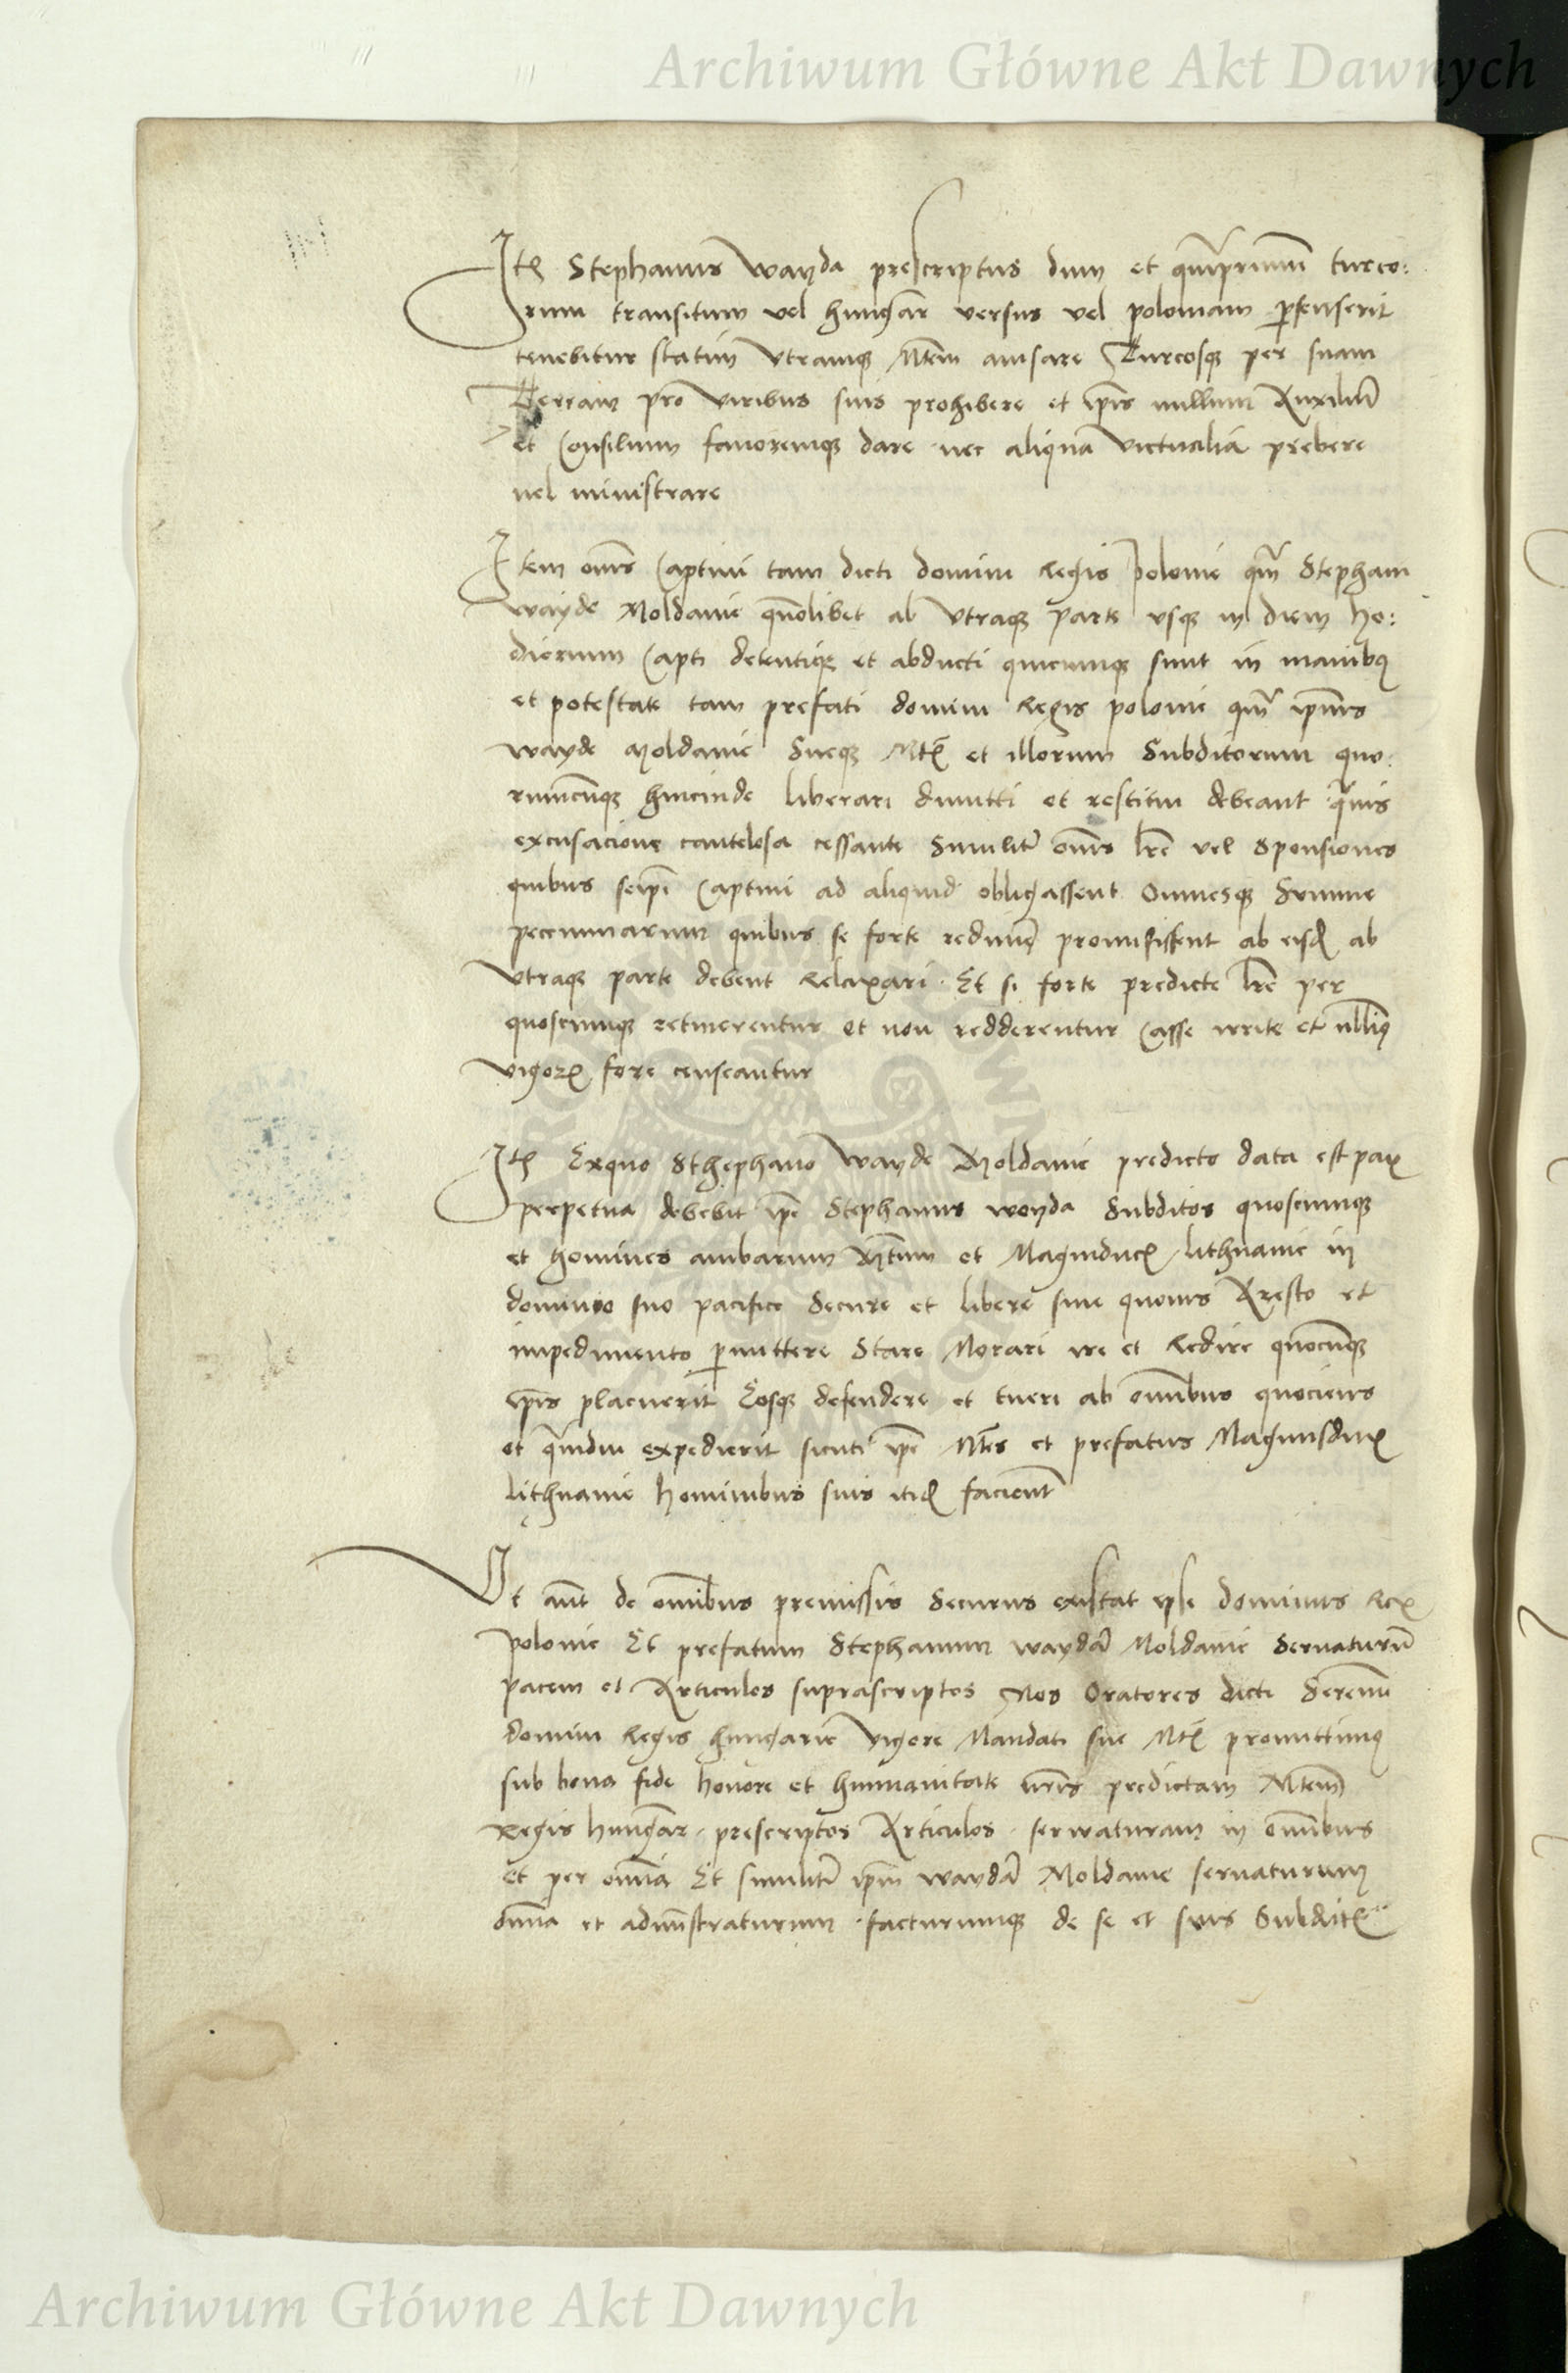 Archiwum Główne Akt Dawnych
Itē Stephanus wayda prescriptus dum et quāprimū turco:
rum transitum vel hungār versus vel poloniam psenserit
tenebitur statim vtramqꝫ Mtēm auisare Turcosqꝫ per suam
Terram pro viribus suis prohibere et ipīs nullum Auxiliū
et Consilium fauoremqꝫ dare nec aliqua victualia prebere
uel ministrare
Item om̄s Captiui tam dicti domini Regis polonie qm̄ Stephani
wayde Moldauie quōlibet ab vtraqꝫ parte vsqꝫ in diem ho:
diernum Capti detentiqꝫ et abducti quicumqꝫ sunt in manibꝯ
et potestate tam prefati domini Regis polonie qm̄ ipīus
wayde Moldauie Sueqꝫ Mtꝭ et illorum Subditorum quo:
rumcūqꝫ hincinde liberari dimitti et restitui debeant quis
excusacione cautelosa cessante Similitē om̄s lrē vel Sponsiones
quibus seipī Captiui ad aliquid obligassent Omnesqꝫ Summe
pecunniarum quibus se forte redimē promisissent ab eisdꝭ ab
vtraqꝫ parte debent Relaxari Et si forte predicte lrē per
quoscumqꝫ retinerentur et non redderentur Casse irrite et nlliꝯ
vigorꝭ fore censeantur
Itē Exquo Sthephano wayde Moldauie predicto data est pax
perpetua debebit ipē Stephanus woyda Subditos quoscumqꝫ
et homines ambarum Mtūm et Magniducꝭ lithuanie in
dominio suo pacifice Secure et libere sine quouis Aresto et
impedimento pmittere Stare Morari ire et Redire quocūqꝫ
ipīs placuerit Eosqꝫ defendere et tueri ab om̄ibus quociens
et qm̄diu expedierit sicuti ipē Mtēs et prefatus Magnusdux
lithuanie hominibus suis itidꝭ facient
Vt aūt de om̄ibus premissis Securus existat ipse dominus Rex
polonie Et prefatum Stephanum waydā Moldauie Seruaturū
pacem et Articulos suprascriptos Nos Oratores dicti Serenmi
domini Regis hungarie vigore Mandati sue Mtꝭ promittimꝯ
sub bona fide honore et humanitate nrīs predictam Mtēm
Regis hungār prescriptos Articulos seruaturam in om̄ibus
et per om̄ia Et similitē ipm̄ waydā Moldauie seruaturum
om̄ia et admīstraturum facturumqꝫ de se et suis Subditꝭ
Archiwum Główne Akt Dawnych